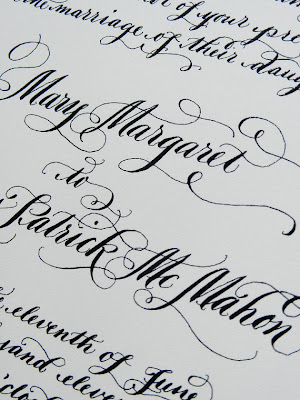 of your pre
the marriage of their daug
Mary Margaret
to
Patrick McMahon
eleventh of June
sand eleve
o'cloc